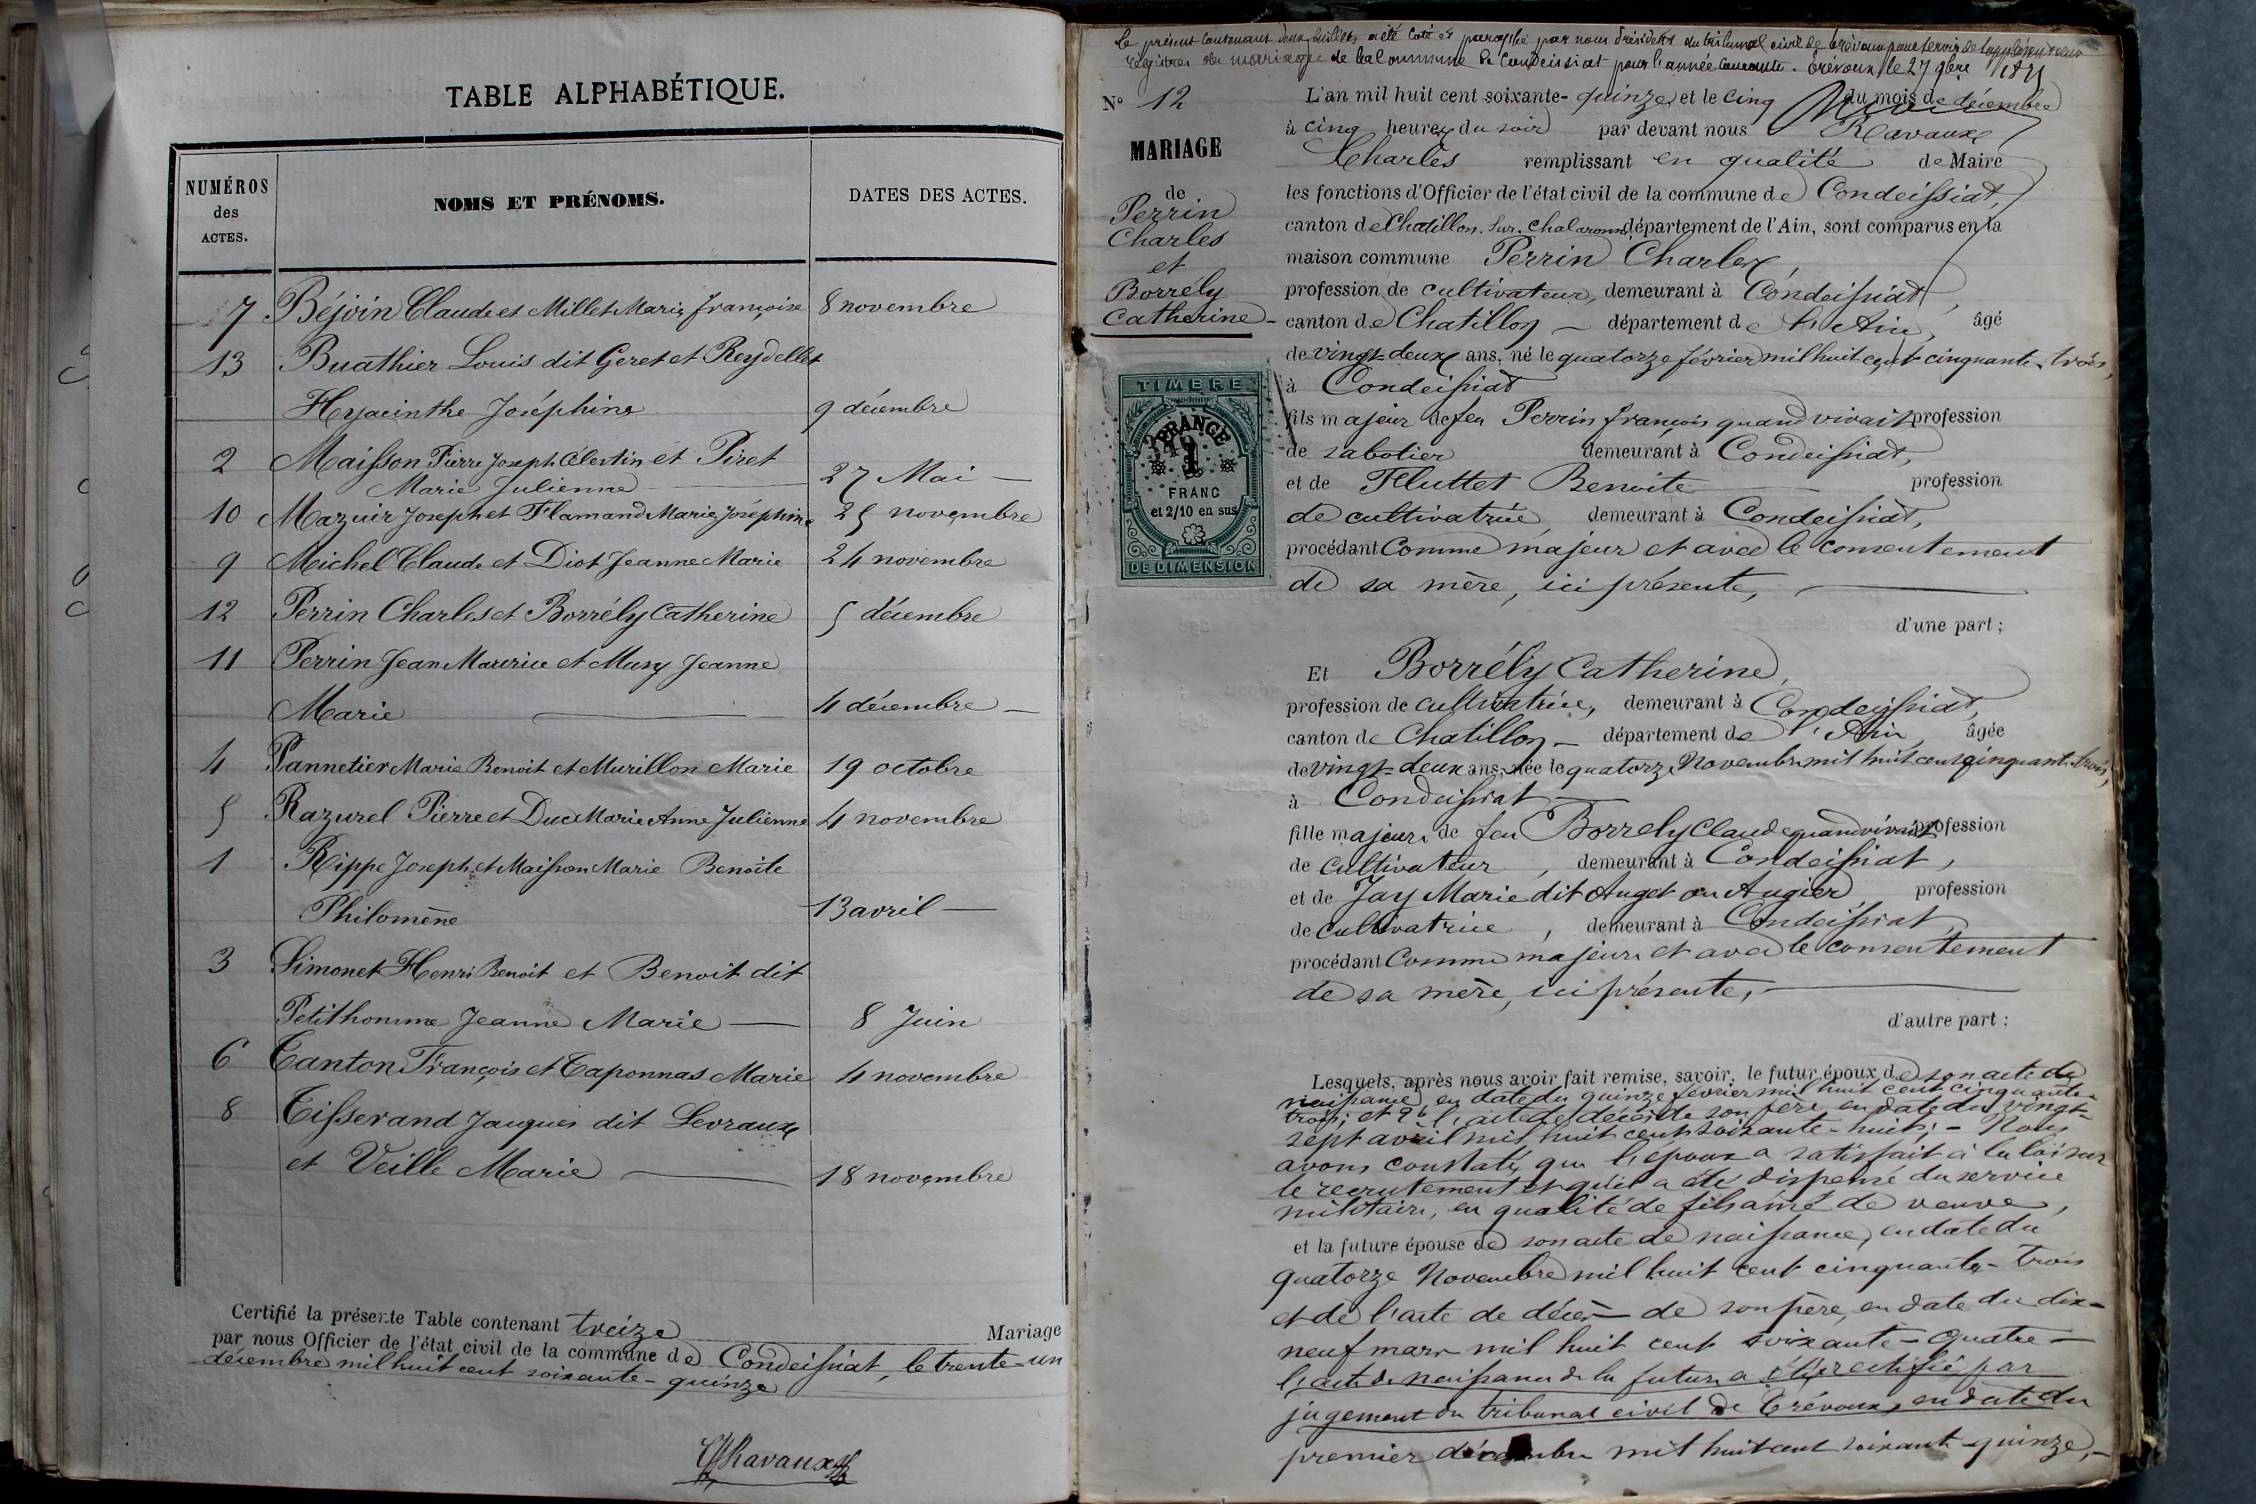 TABLE ALPHABÉTIQUE.
NUMÉROS des ACTES.
NOMS ET PRÉNOMS.
DATES DES ACTES.
7 Béjoin Claude et Millet Marie françoise 8 novembre
13 Buathier Louis dit Geret et Reydellet
Hyacinthe Joséphine 9 décembre
2 Maisson Pierre Joseph Célestin et Piret
Marie Julienne 27 Mai
10 Mazuir Joseph et Flamand Marie Joséphine 25 novembre
9 Michel Claude et Diot Jeanne Marie 24 novembre
12 Perrin Charles et Borrély Catherine 5 décembre
11 Perrin Jean Maurice et Musy Jeanne
Marie 4 décembre
4 Pannetier Marie Benoit et Murillon Marie 19 octobre
5 Razurel Pierre et Duc Marie Anne Julienne 4 novembre
1 Rippe Joseph et Maisson Marie Benoite
Philomène 13 avril
3 Simonet Henri Benoit et Benoit dit
Petithomme Jeanne Marie 8 Juin
6 Tanton François et Taponnas Marie 4 novembre
8 Tisserand Jacques dit Levraux
et Veille Marie 18 novembre
Certifié la présente Table contenant treize Mariage
par nous Officier de l'état civil de la commune de Condeissiat, le trente-un
décembre mil huit cent soixante-quinze
Ravaux
le présent contenant deux feuillets a été coté et paraphé par nous Président du tribunal civil de Trévoux pour servir de supplément aux
registres de mariage de la Commune de Condeissiat pour l'année courante. Trévoux le 27 9bre 1875
N° 12
MARIAGE
de
Perrin
Charles
et
Borrély
Catherine
TIMBRE
FRANCE
1
FRANC
et 2/10 en sus
DE DIMENSION
L'an mil huit cent soixante-quinze et le cinq du mois de décembre
à cinq heures du soir par devant nous Ravaux
Charles remplissant en qualité de Maire
les fonctions d'Officier de l'état civil de la commune de Condeissiat,
canton de Chatillon-sur-Chalaronne, département de l'Ain, sont comparus en la
maison commune Perrin Charles,
profession de cultivateur, demeurant à Condeissiat,
canton de Chatillon – département de l'Ain, âgé
de vingt-deux ans, né le quatorze février mil huit cent cinquante-trois,
à Condeissiat
fils majeur de feu Perrin françois quand vivait profession
de sabotier demeurant à Condeissiat,
et de Fluttet Benoite profession
de cultivatrice, demeurant à Condeissiat,
procédant comme majeur et avec le consentement
de sa mère, ici présente,
d'une part ;
Et Borrély Catherine,
profession de cultivatrice, demeurant à Condeissiat,
canton de Chatillon – département de l'Ain, âgée
de vingt-deux ans, née le quatorze Novembre mil huit cent cinquante-trois,
à Condeissiat
fille majeure de feu Borrely Claude quand vivait profession
de cultivateur, demeurant à Condeissiat,
et de Jay Marie dit Auget ou Augier profession
de cultivatrice, demeurant à Condeissiat,
procédant comme majeure et avec le consentement
de sa mère, ici présente,
d'autre part ;
Lesquels, après nous avoir fait remise, savoir, le futur époux de son acte de
naissance, en date du quinze février mil huit cent cinquante-
trois; et 2° l'acte de décès de son père en date du vingt-
sept avril mil huit cent soixante-huit; – Nous
avons constaté que l'époux a satisfait à la loi sur
le recrutement et qu'il a été dispensé du service
militaire, en qualité de fils aîné de veuve,
et la future épouse de son acte de naissance, en date du
quatorze Novembre mil huit cent cinquante-trois
et de l'acte de décès de son père, en date du dix-
neuf mars mil huit cent soixante-quatre –
l'acte de naissance de la future a été rectifié par
jugement du tribunal civil de Trévoux, en date du
premier décembre mil huit cent soixante-quinze,